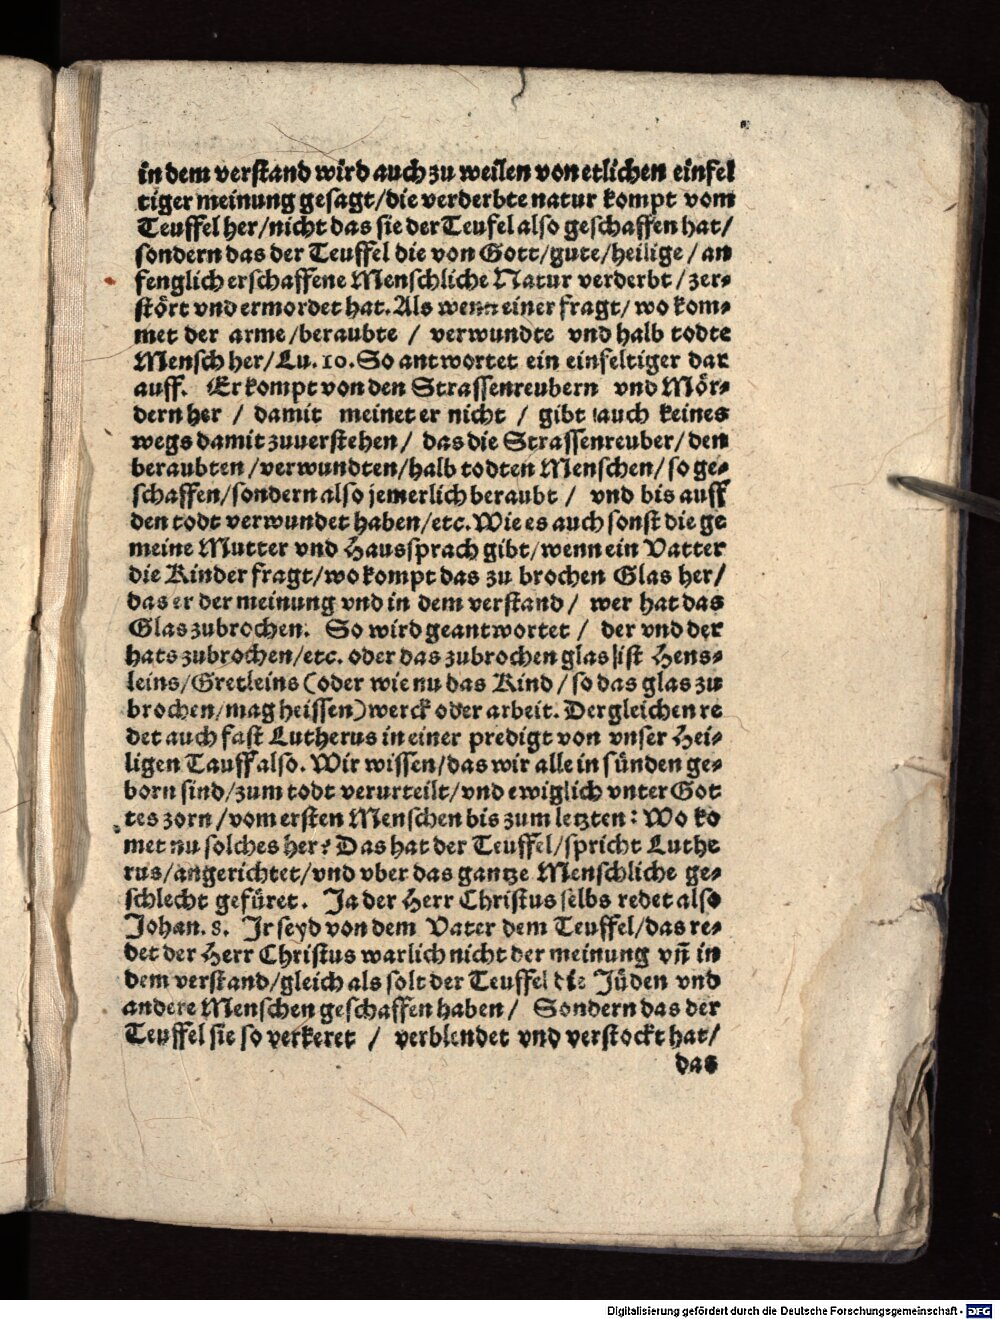 in dem verstand wird auch zu weilen von etlichen einfel
tiger meinung gesagt/die verderbte natur kompt vom
Teuffel her/nicht das sie der Teufel also geschaffen hat/
sondern das der Teuffel die von Gott/gute/heilige/an
fenglich erschaffene Menschliche Natur verderbt/zer-
stört vnd ermordet hat. Als wenn einer fragt/wo kom-
met der arme/beraubte / verwundte vnd halb todte
Mensch her/Lu. 10. So antwortet ein einfeltiger dar
auff. Er kompt von den Strassenreubern vnd Mör-
dern her / damit meinet er nicht / gibt auch keines
wegs damit zuuerstehen/ das die Strassenreuber/den
beraubten/verwundten/halb todten Menschen/so ge-
schaffen/sondern also jemerlich beraubt / vnd bis auff
den todt verwundet haben/etc. Wie es auch sonst die ge
meine Mutter vnd Haussprach gibt/wenn ein Vatter
die Kinder fragt/wo kompt das zu brochen Glas her/
das er der meinung vnd in dem verstand/ wer hat das
Glas zubrochen. So wird geantwortet / der vnd der
hats zubrochen/etc. oder das zubrochen glas ist Hens-
leins/Gretleins (oder wie nu das Kind/so das glas zu
brochen/mag heissen) werck oder arbeit. Dergleichen re
det auch fast Lutherus in einer predigt von vnser Hei-
ligen Tauff also. Wir wissen/das wir alle in sünden ge-
born sind/zum todt verurteilt/vnd ewiglich vnter Got
tes zorn/vom ersten Menschen bis zum letzten: Wo ko
met nu solches her? Das hat der Teuffel/spricht Luthe
rus/angerichtet/vnd vber das gantze Menschliche ge-
schlecht gefüret. Ja der Herr Christus selbs redet also
Johan. 8. Jr seyd von dem Vater dem Teuffel/das re-
det der Herr Christus warlich nicht der meinung vn̄ in
dem verstand/gleich als solt der Teuffel die Jüden vnd
andere Menschen geschaffen haben/ Sondern das der
Teuffel sie so verkeret / verblendet vnd verstockt hat/
das
Digitalisierung gefördert durch die Deutsche Forschungsgemeinschaft - DFG